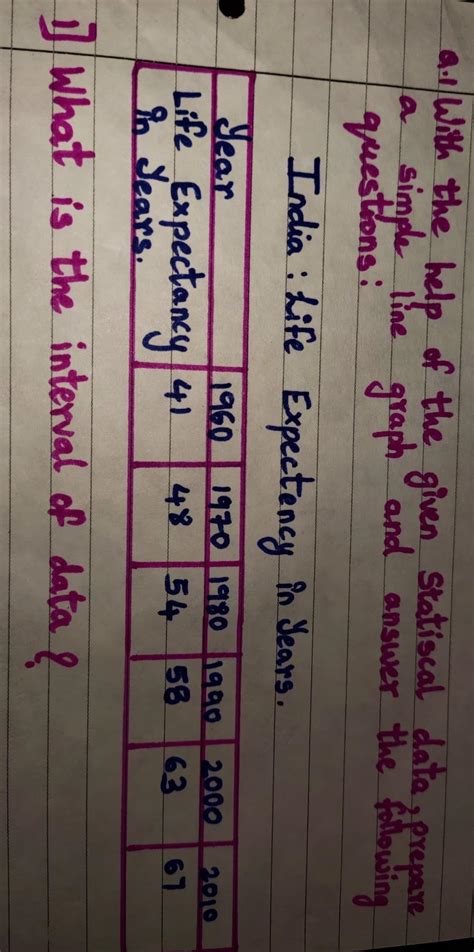 Q.1 With the help of the given Statiscal data, prepare
a simple line graph and answer the following
questions:
India: Life Expectency in Years.
Year 1960 1970 1980 1990 2000 2010
Life Expectancy 41 48 54 58 63 67
in Years.
1] What is the interval of data?